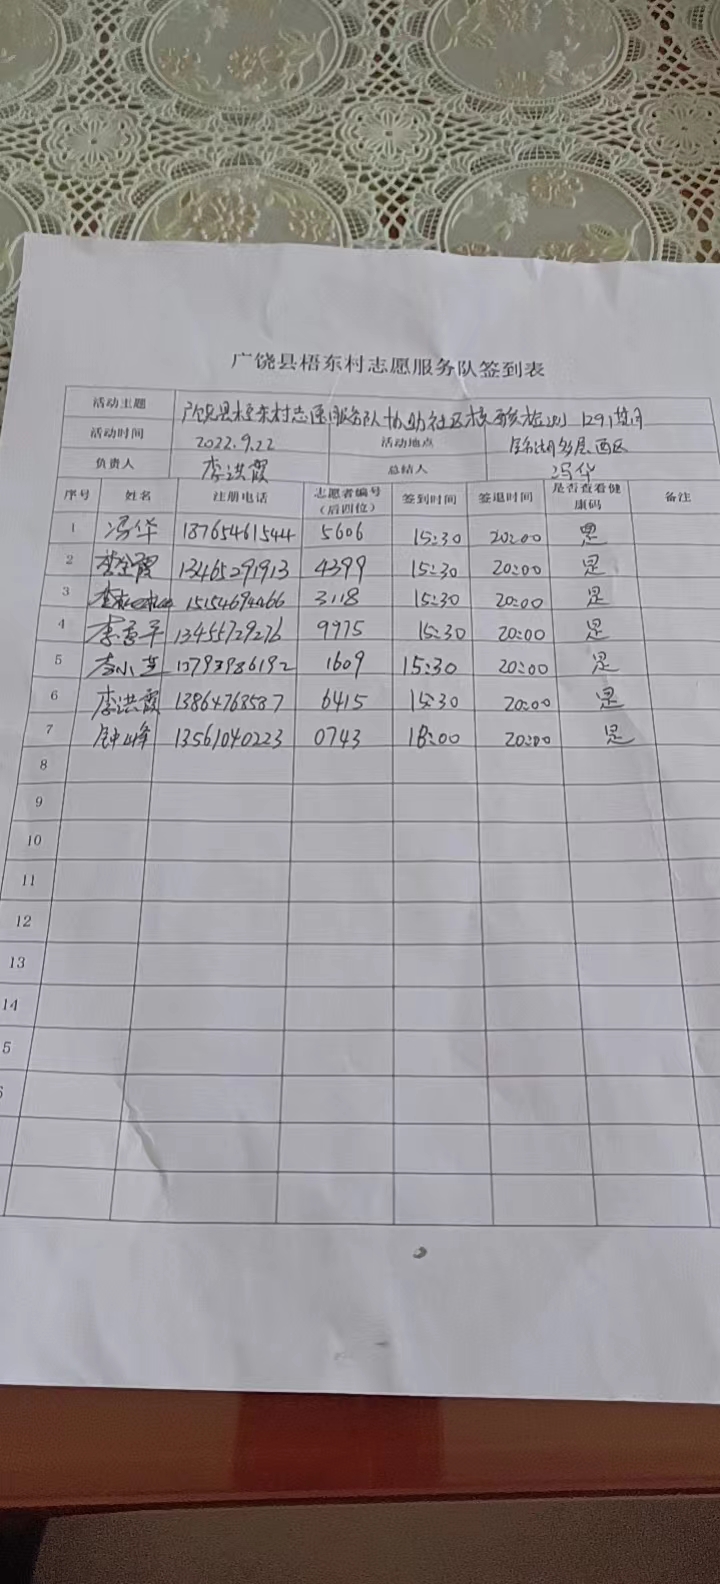 广饶县梧东村志愿服务队签到表
活动主题 广饶县梧东村志愿服务队协助社区核酸检测129期
活动时间 2022.9.22 活动地点 多层西区
负责人 李洪霞 总结人 冯华
序号 姓名 注册电话 志愿者编号（后四位） 签到时间 签退时间 是否查看健康码 备注
1 冯华 18765461544 5606 15:30 20:00 是
2 李金霞 13465291913 4399 15:30 20:00 是
3 3118 15:30 20:00 是
4 李秀平 13455729276 9975 15:30 20:00 是
5 李小 13793986192 1609 15:30 20:00 是
6 李洪霞 13864763587 6415 15:30 20:00 是
7 峰 13561040223 0743 18:00 20:00 是
8
9
10
11
12
13
14
5